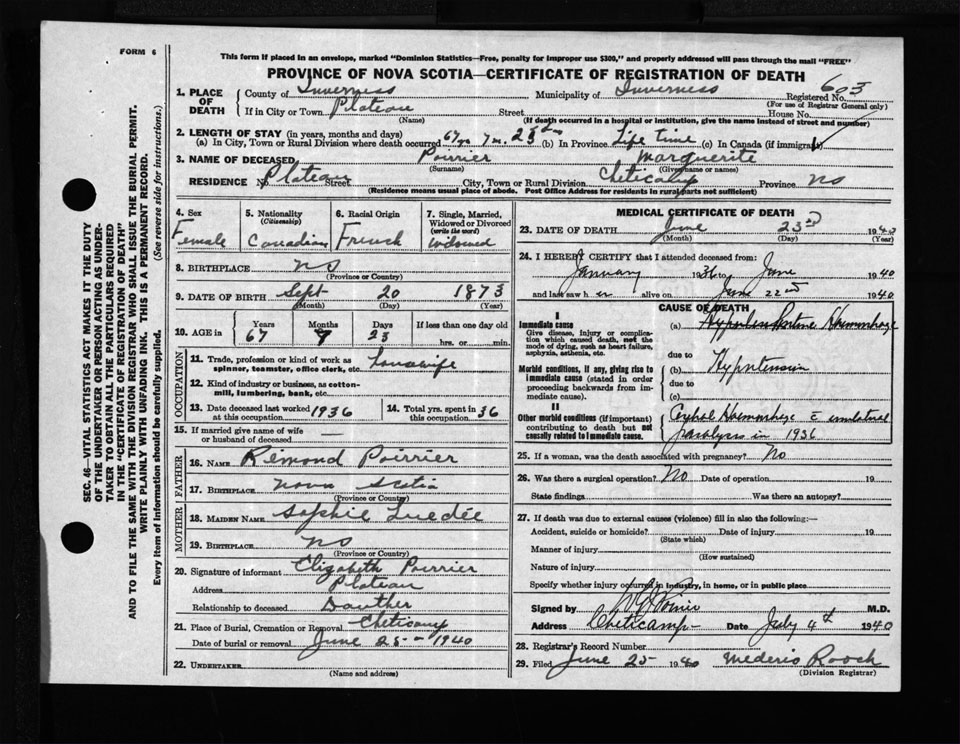 FORM 6
This form if placed in an envelope, marked "Dominion Statistics—Free, penalty for improper use $300," and properly addressed will pass through the mail "FREE"
PROVINCE OF NOVA SCOTIA—CERTIFICATE OF REGISTRATION OF DEATH
1. PLACE OF DEATH
County of Inverness Municipality of Inverness Registered No. 603
(For use of Registrar General only)
If in City or Town Plateau Street House No.
(Name) (If death occurred in a hospital or institution, give the name instead of street and number)
2. LENGTH OF STAY (in years, months and days)
(a) In City, Town or Rural Division where death occurred 67 yrs 7 m. 23 ds (b) In Province Life time (c) In Canada (if immigrant)
3. NAME OF DECEASED Poirrier Marguerite
(Surname) (Given name or names)
RESIDENCE No Plateau Street City, Town or Rural Division Cheticamp Province NS
(Residence means usual place of abode. Post Office Address for residents in rural parts not sufficient)
4. Sex Female
5. Nationality (Citizenship) Canadian
6. Racial Origin French
7. Single, Married, Widowed or Divorced (write the word) Widowed
8. BIRTHPLACE NS
(Province or Country)
9. DATE OF BIRTH Sept 20 1873
(Month) (Day) (Year)
10. AGE in Years Months Days If less than one day old
67 9 23 hrs. or min.
OCCUPATION
11. Trade, profession or kind of work as spinner, teamster, office clerk, etc. housewife
12. Kind of industry or business, as cotton-mill, lumbering, bank, etc.
13. Date deceased last worked at this occupation 1936
14. Total yrs. spent in this occupation 36
15. If married give name of wife or husband of deceased —
FATHER
16. NAME Rémond Poirrier
17. BIRTHPLACE Nova Scotia
(Province or Country)
MOTHER
18. MAIDEN NAME Sophie
19. BIRTHPLACE NS
(Province or Country)
20. Signature of informant Elizabeth Poirrier
Address Plateau
Relationship to deceased Dauther
21. Place of Burial, Cremation or Removal Cheticamp
Date of burial or removal June 25 - 1940
22. UNDERTAKER
(Name and address)
MEDICAL CERTIFICATE OF DEATH
23. DATE OF DEATH June 23rd 1940
(Month) (Day) (Year)
24. I HEREBY CERTIFY that I attended deceased from:
January 1936 to June 1940
and last saw her alive on June 22nd 1940
CAUSE OF DEATH
I
Immediate cause
Give disease, injury or complication which caused death, not the mode of dying, such as heart failure, asphyxia, asthenia, etc.
(a) Haemorrhage
due to
Morbid conditions, if any, giving rise to immediate cause (stated in order proceeding backwards from immediate cause).
(b) Hypertension
due to
(c)
II
Other morbid conditions (if important) contributing to death but not causally related to immediate cause.
Haemorrhage c unilateral
paralysis in 1936
25. If a woman, was the death associated with pregnancy? No
26. Was there a surgical operation? No Date of operation 19
State findings Was there an autopsy?
27. If death was due to external causes (violence) fill in also the following:—
Accident, suicide or homicide? Date of injury 19
(State which)
Manner of injury
(How sustained)
Nature of injury
Specify whether injury occurred in industry, in home, or in public place
Signed by M.D.
Address Cheticamp Date July 4th 1940
28. Registrar's Record Number
29. Filed June 25 1940 Mederic Roach
(Division Registrar)
SEC. 46—VITAL STATISTICS ACT MAKES IT THE DUTY
OF THE UNDERTAKER OR PERSON ACTING AS UNDER-
TAKER TO OBTAIN ALL THE PARTICULARS REQUIRED
IN THE "CERTIFICATE OF REGISTRATION OF DEATH"
AND TO FILE THE SAME WITH THE DIVISION REGISTRAR WHO SHALL ISSUE THE BURIAL PERMIT.
WRITE PLAINLY WITH UNFADING INK. THIS IS A PERMANENT RECORD.
Every item of information should be carefully supplied. (See reverse side for instructions.)